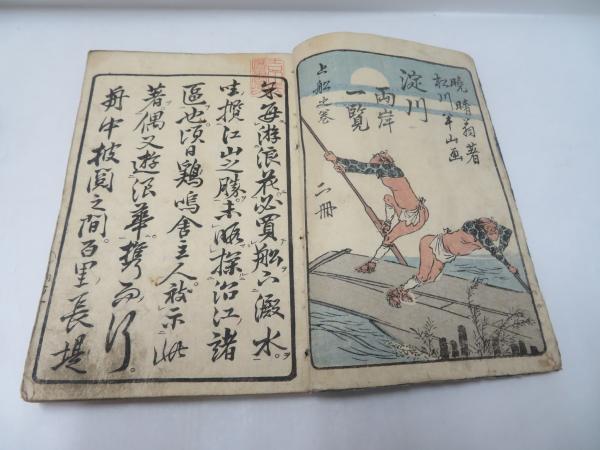 暁晴翁著
松川半山画
淀川
両岸
一覧
上船之巻
二冊
余毎游浪花必買船下澱水
唯攬江山之勝未略探沿江諸
區也頃日鶏鳴舎主人被示此
著偶又遊浪華携而行
舟中披閲之間百里長堤